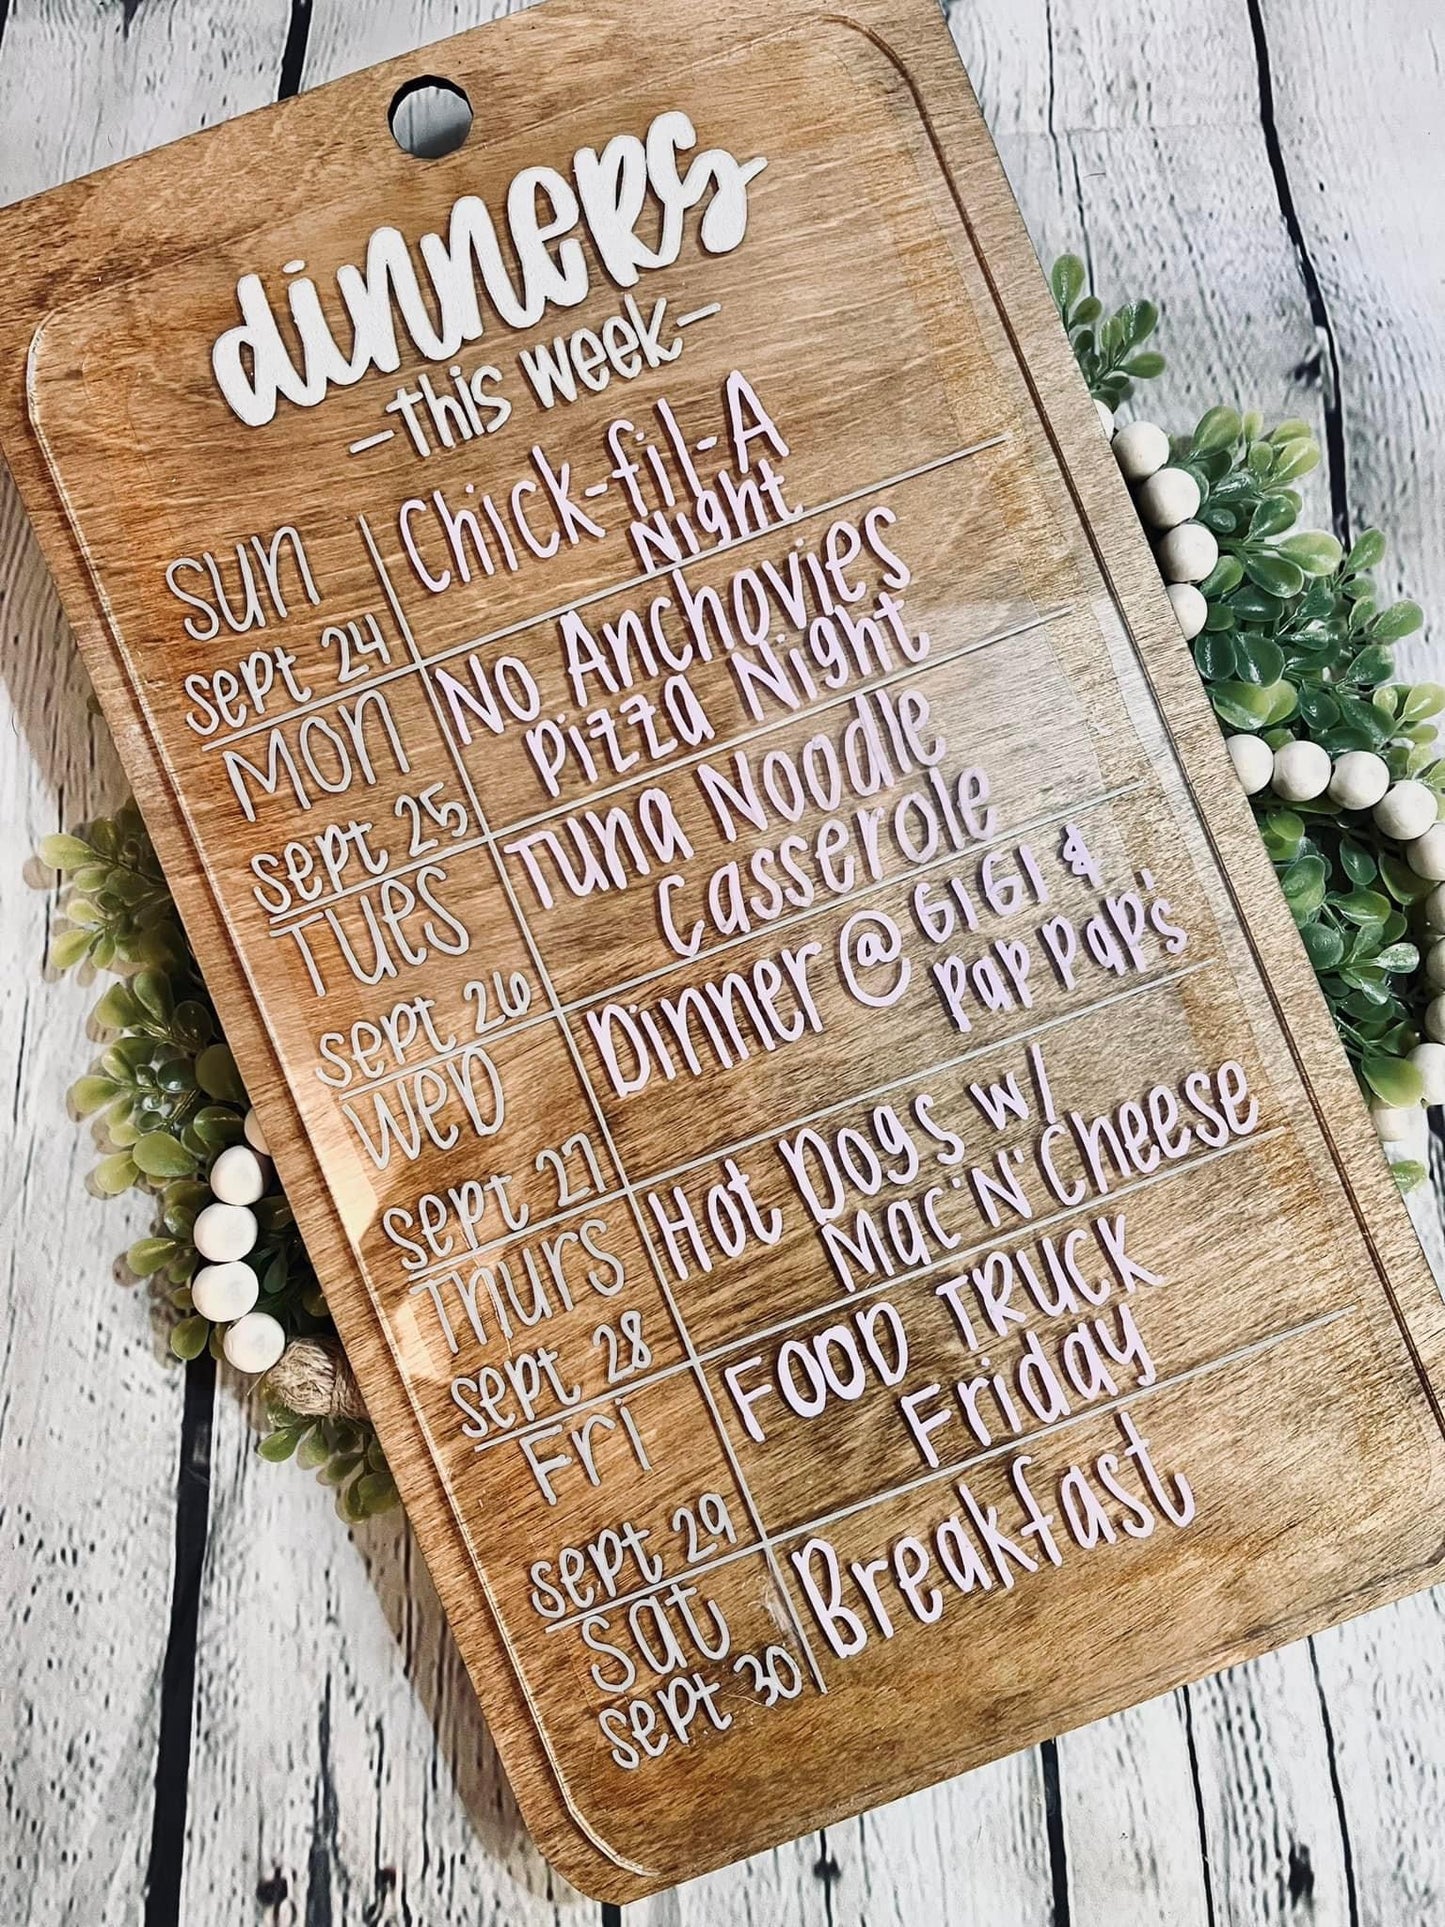 dinners
-this week-
Sun
Sept 24
Chick-fil-A
Night
Mon
Sept 25
No Anchovies
Pizza Night
Tues
Sept 26
Tuna Noodle
Casserole
Wed
Sept 27
Dinner @ GiGi &
Pap Pap's
Thurs
Sept 28
Hot Dogs w/
Mac 'N' Cheese
Fri
Sept 29
FOOD TRUCK
Friday
Sat
Sept 30
Breakfast